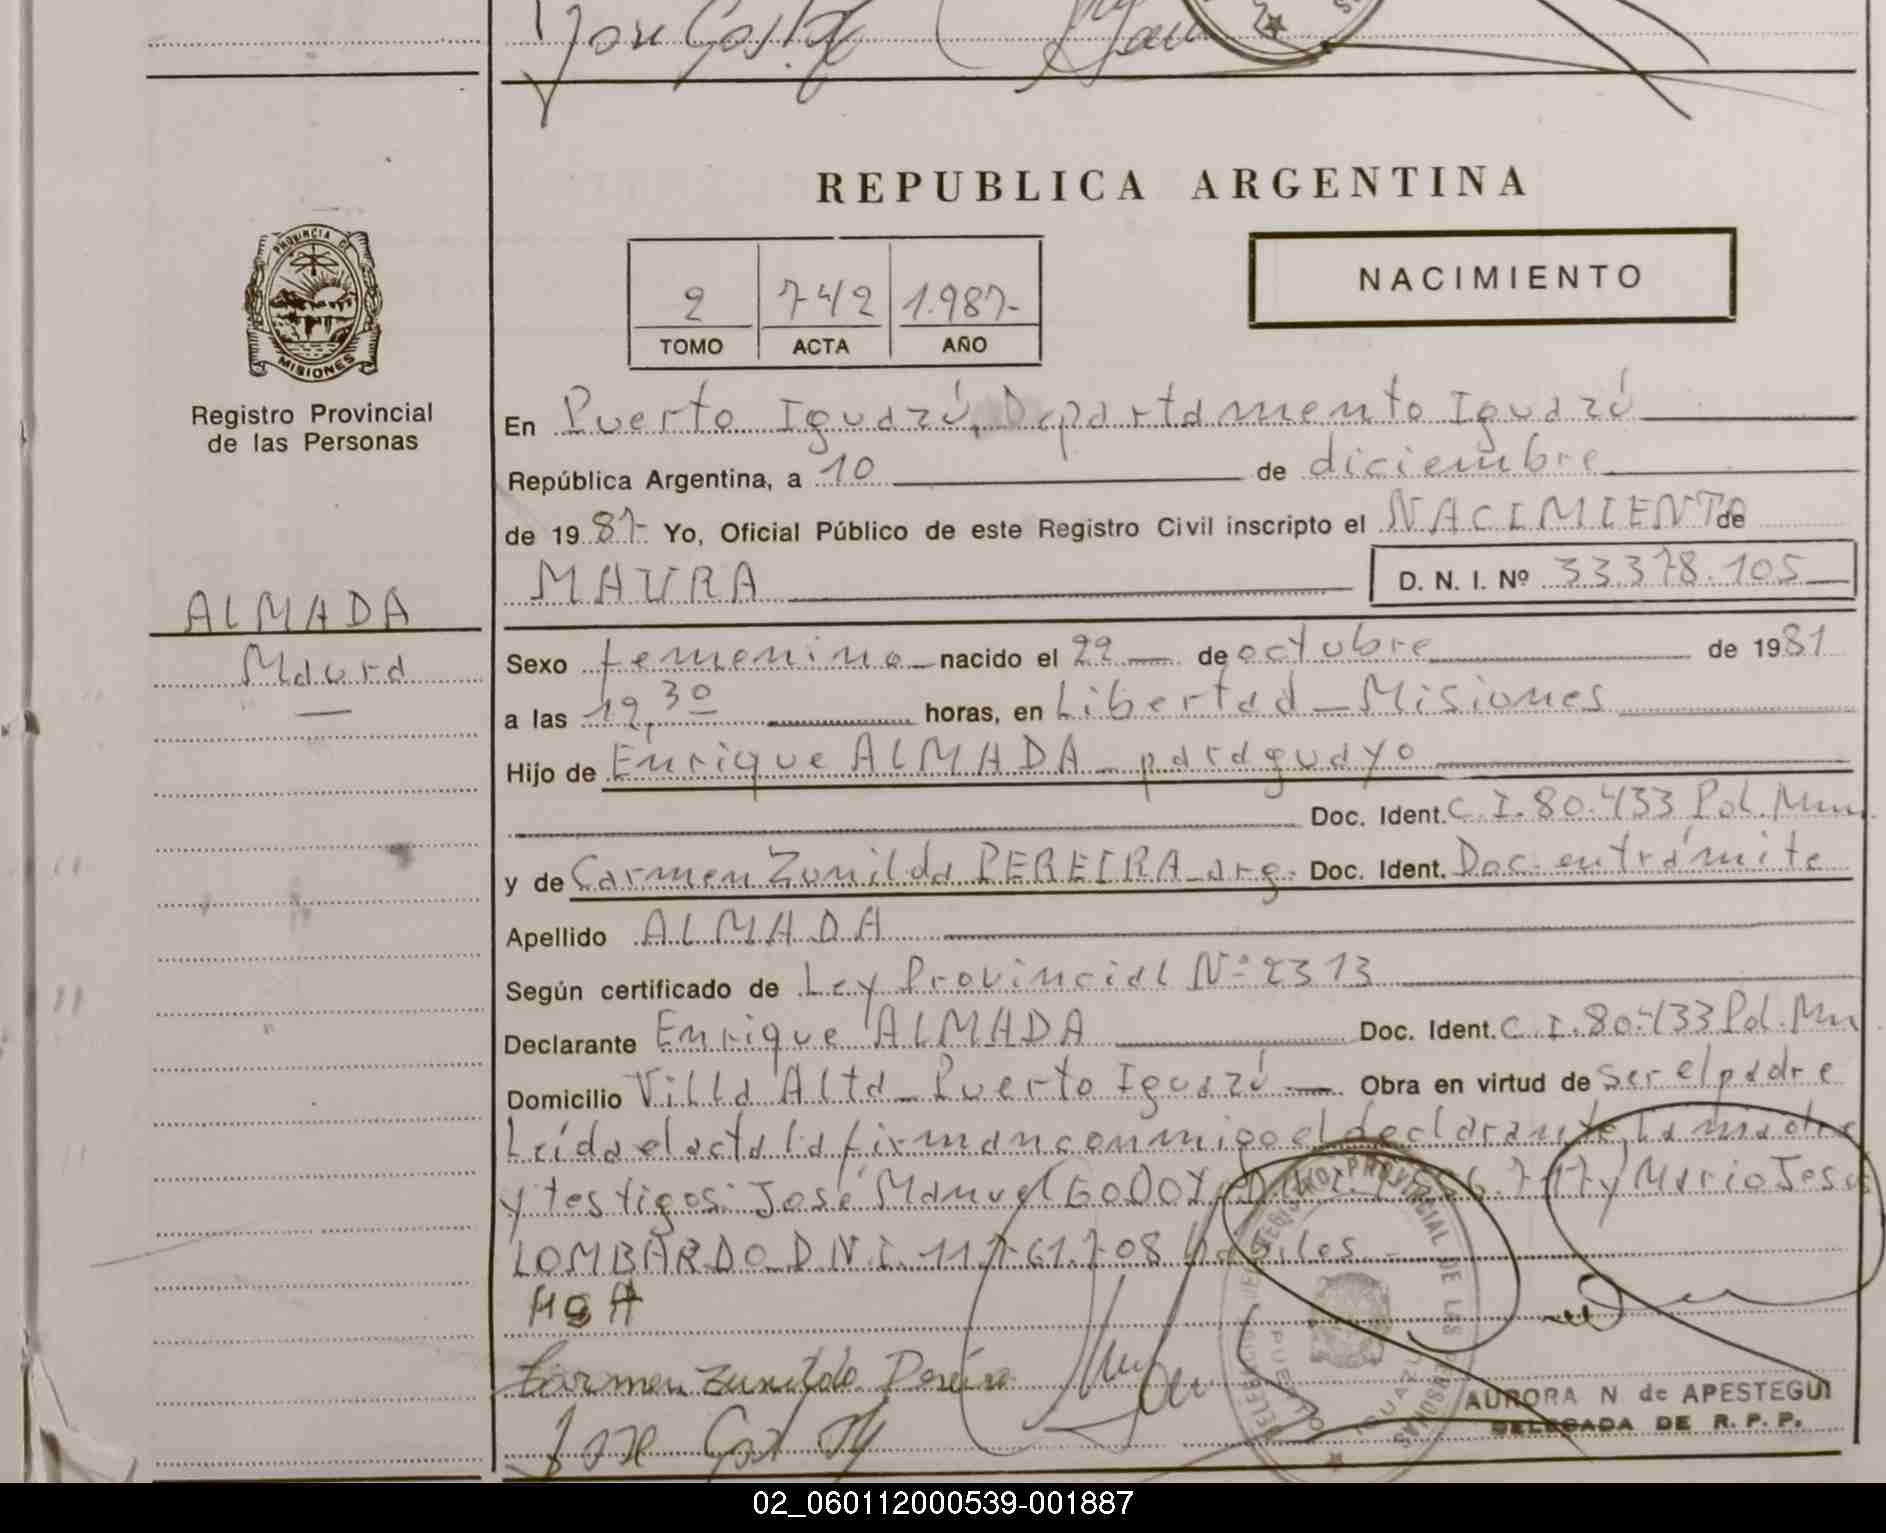 José God
REPUBLICA ARGENTINA
PROVINCIA DE
MISIONES
Registro Provincial
de las Personas
2 742 1.987-
TOMO ACTA AÑO
NACIMIENTO
En Puerto Iguazú, Departamento Iguazú
República Argentina, a 10 de diciembre
de 1987- Yo, Oficial Público de este Registro Civil inscripto el NACIMIENTO de
MAURA D. N. I. Nº 33.378.105
ALMADA
Maura
Sexo femenino nacido el 22 de octubre de 1981
a las 19,30 horas, en Libertad - Misiones
Hijo de Enrique ALMADA - paraguayo
Doc. Ident. C.I. 80.433 Pol. Mnes.
y de Carmen Zunilda PEREIRA - arg. Doc. Ident. Doc. en trámite
Apellido ALMADA
Según certificado de Ley Provincial Nº 2313
Declarante Enrique ALMADA Doc. Ident. C.I. 80.433 Pol. Mn
Domicilio Villa Alta - Puerto Iguazú Obra en virtud de ser el padre
Leída el acta la firman conmigo el declarante, la madre
y testigos: José Manuel GODOY y Mario Jesús
LOMBARDO D.N.I. 11.761.708 hábiles -
Carmen Zunilda Pereira
José God
REGISTRO PROVINCIAL DE LAS PERSONAS
PUERTO IGUAZU
AURORA N de APESTEGUI
DELEGADA DE R. P. P.
02_060112000539-001887